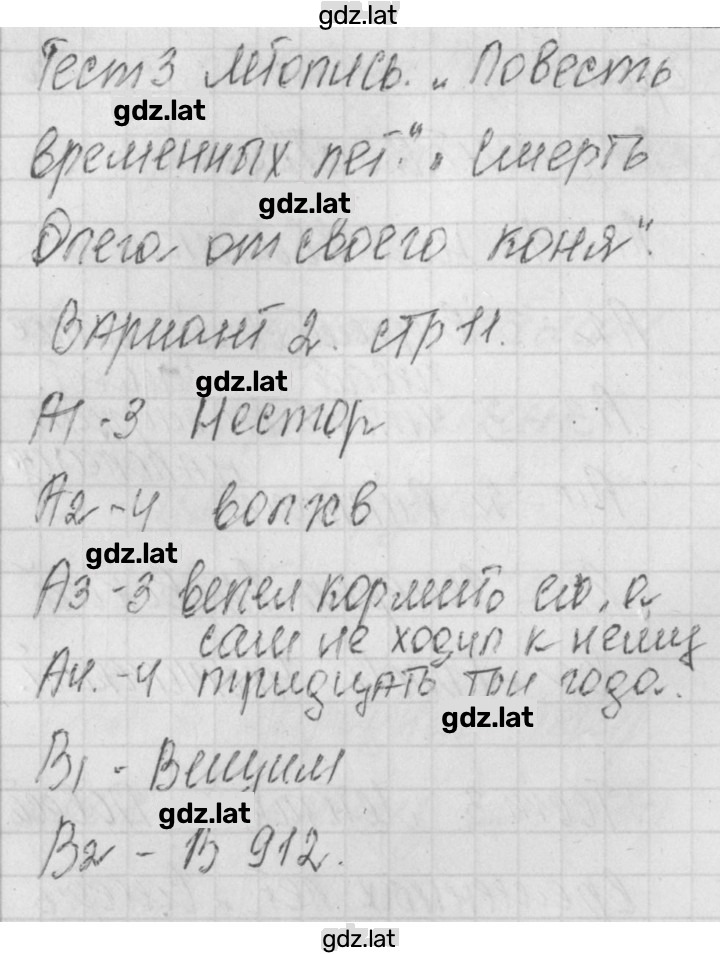 gdz.lat
Тест 3 Летопись. „ Повесть
gdz.lat
временных лет." „ Смерть
gdz.lat
Олега от своего коня".
Вариант 2. стр 11.
gdz.lat
А1 - 3 Нестор
А2 - 4 волхв
gdz.lat
А3 - 3 велел кормить его, а
сам не ходил к нему
А4. - 4 тридцать три года.
gdz.lat
В1 - Вещим
gdz.lat
В2 - В 912.
gdz.lat